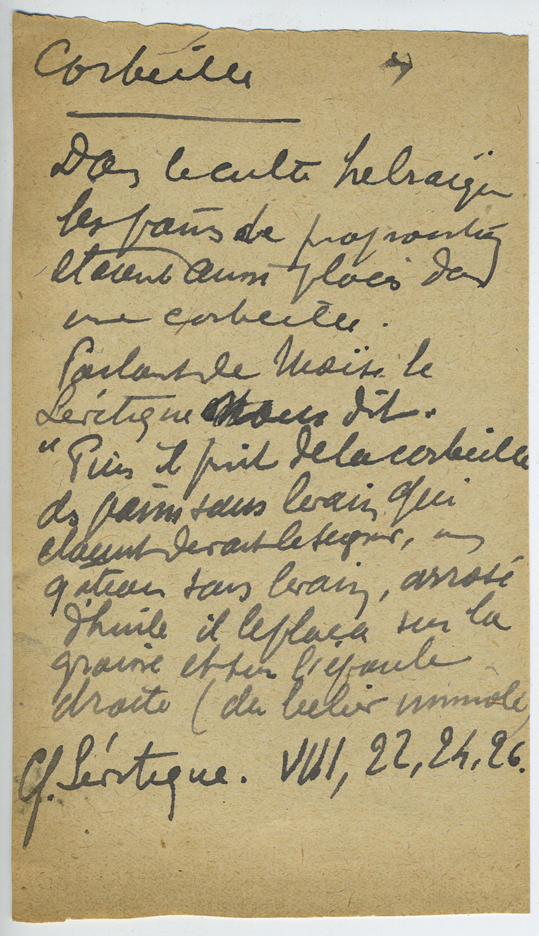 Corbeille
Dans le culte hébraïque
les pains de proposition
étaient aussi placés dans
une corbeille.
Parlant de Moïse le
Lévitique nous dit.
"Puis il prit de la corbeille
des pains sans levain qui
étaient devant le Seigneur, un
gâteau sans levain, arrosé
d'huile il le plaça sur la
graisse et sur l'épaule
droite (du bélier immolé)
Cf. Lévitique. VIII, 22, 24, 26.